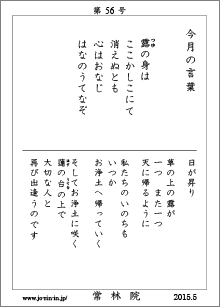 第 56 号
今月の言葉
露の身は
つゆ
ここかしこにて
消えぬとも
心はおなじ
はなのうてなぞ
日が昇り
草の上の露が
一つ　また一つ
天に帰るように
私たちのいのちも
いつか
お浄土へ帰っていく
そしてお浄土に咲く
蓮の台の上で
大切な人と
再び出逢うのです
www.jo-rin-in.jp/
常林院
2015.5